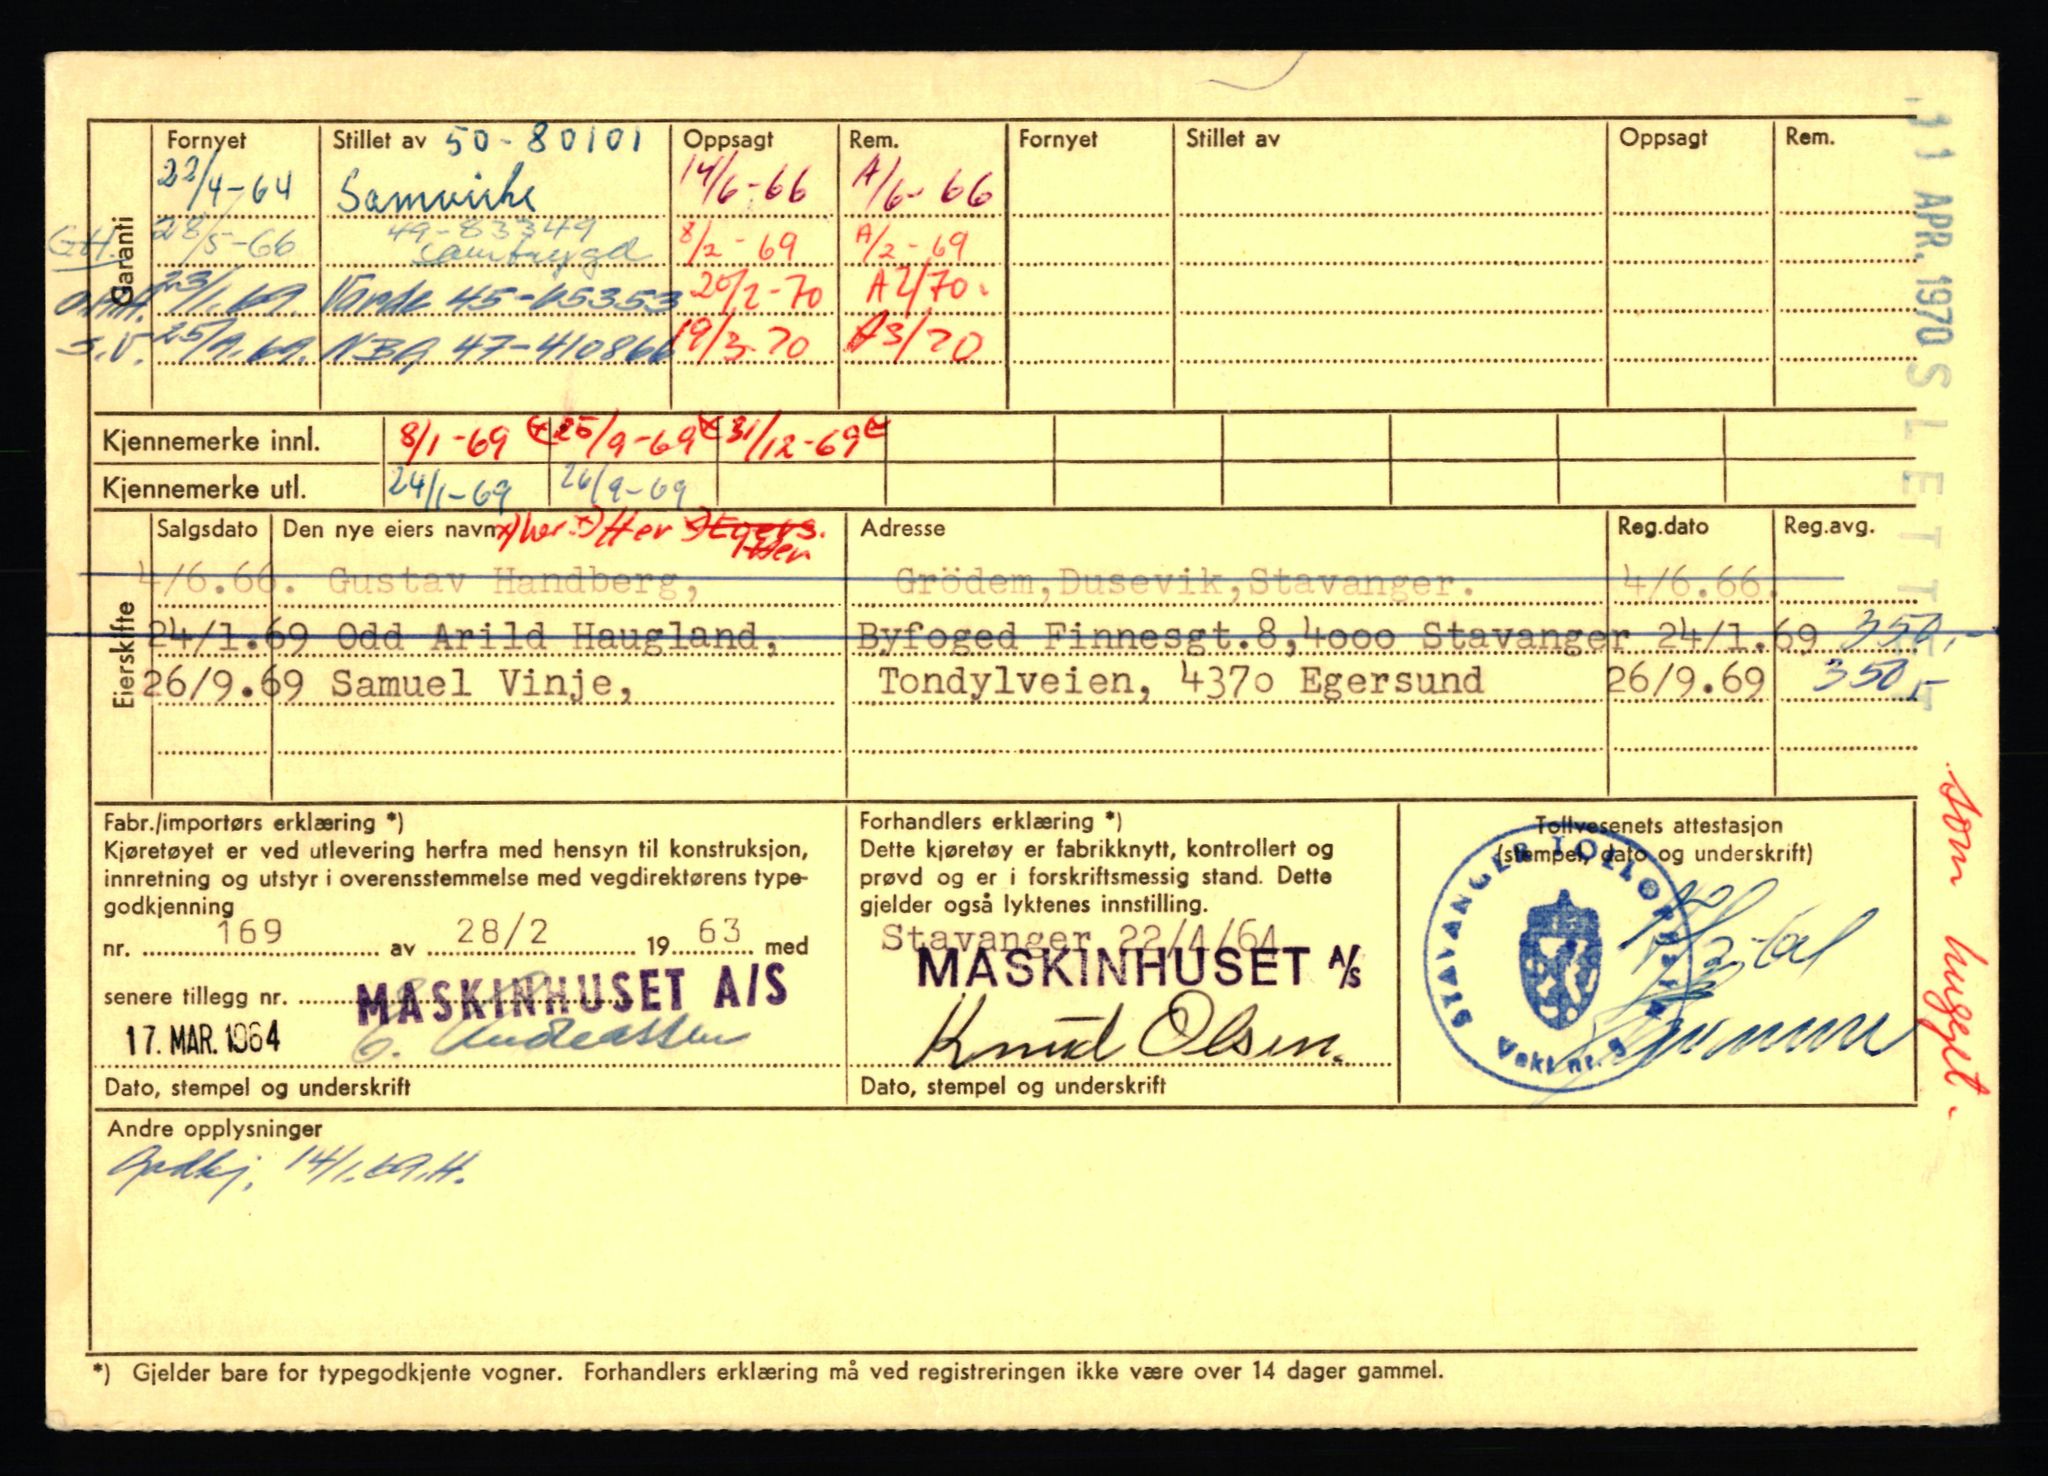 Garanti
Fornyet Stillet av 50-80101 Oppsagt Rem. Fornyet Stillet av Oppsagt Rem.
22/4-64 Samvirke 14/6-66 A/6-66
G.H. 28/5-66 49-83349 Samtrygd 8/2-69 A/2-69
23/1.69. Varde 45-65353 20/2-70 A2/70.
S.V. 25/9.69. NBA 47-410866 19/3-70 A3/70
Kjennemerke innl. 8/1-69 x 25/9-69 x 31/12-69 x
Kjennemerke utl. 24/1-69 26/9-69
Eierskifte
Salgsdato Den nye eiers navn x) her. x) Her x) Egers. Her Adresse Reg.dato Reg.avg.
4/6.66. Gustav Handberg, Grödem,Dusevik,Stavanger. 4/6.66.
24/1.69 Odd Arild Haugland, Byfoged Finnesgt.8,4000 Stavanger 24/1.69 350,-
26/9.69 Samuel Vinje, Tondylveien, 4370 Egersund 26/9.69 350,-
31 APR. 1970 SLETTET
som hugget.
Fabr./importørs erklæring *)
Kjøretøyet er ved utlevering herfra med hensyn til konstruksjon,
innretning og utstyr i overensstemmelse med vegdirektørens type-
godkjenning
nr. 169 av 28/2 19 63 med
senere tillegg nr.
MASKINHUSET A/S
17. MAR. 1964 Andreassen
Dato, stempel og underskrift
Forhandlers erklæring *)
Dette kjøretøy er fabrikknytt, kontrollert og
prøvd og er i forskriftsmessig stand. Dette
gjelder også lyktenes innstilling.
Stavanger 22/4/64
MASKINHUSET A/S
Knud Olsen.
Dato, stempel og underskrift
Tollvesenets attestasjon
(stempel, dato og underskrift)
STAVANGER TOLLDISTRIKT
Vakt nr. 9
Andre opplysninger
Godkj. 14/1.69.H.
*) Gjelder bare for typegodkjente vogner. Forhandlers erklæring må ved registreringen ikke være over 14 dager gammel.